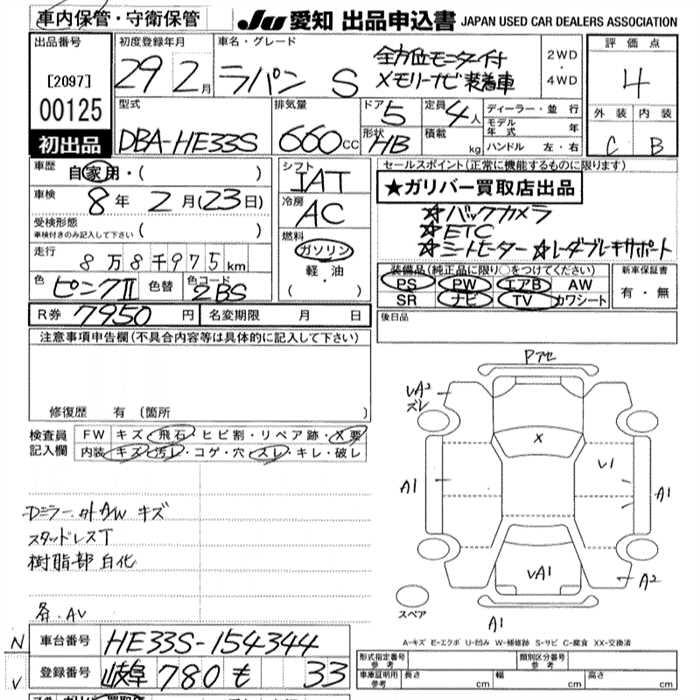 車内保管・守衛保管
JU 愛知 出品申込書 JAPAN USED CAR DEALERS ASSOCIATION
出品番号
[2097]
00125
初出品
初度登録年月
29 2月
車名・グレード
ラパン S
全方位モニター付
メモリーナビ装着車
2WD
・
4WD
評価点
4
外装 内装
C B
型式
DBA-HE33S
排気量
660cc
ドア 5
形状 HB
定員 4人
積載 kg
ディーラー・並行
モデル年式 年
ハンドル 左・右
車歴 自家用・( )
車検 8年 2月(23日)
受検形態
車検付きのみ記入して下さい ( )
走行 8万8千975km
色 ピンクⅡ 色替 色コード ZBS
シフト
IAT
冷房
AC
燃料
ガソリン
軽油
( ・ )
セールスポイント(正常に機能するものに限ります)
★ガリバー買取店出品
☆バックカメラ
☆ETC
☆シートヒーター ☆レーダブレーキサポート
装備品(純正品に限り○をつけてください)
PS PW エアB AW
SR ナビ TV カワシート
新車保証書
有・無
R券 7950円 名変期限 月 日
後日品
注意事項申告欄(不具合内容等は具体的に記入して下さい)
修復歴 有(箇所 )
検査員記入欄
FW キズ・飛石・ヒビ割・リペア跡・X要
内装・キズ・汚レ・コゲ・穴・スレ・キレ・破レ
Dミラー.外AW キズ
スタッドレスT
樹脂部 白化
各.AV
Pアセ
UA²
ズレ
X
U1
A1
A1
UA1
A2
A1
スペア
A-キズ E-エクボ U-凹み W-補修跡 S-サビ C-腐食 XX-交換済
N
V
車台番号 HE33S-154344
登録番号 岐阜 780 も 33
形式指定番号 参考
類別区分番号 参考
車庫証明用 参考 長さ cm 幅 cm 高さ cm